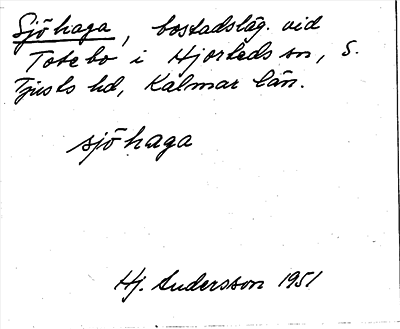 Sjöhaga, bostadsläg. vid
Totebo i Hjorteds sn, S.
Tjusts hd, Kalmar län.
sjöhaga
Hj. Andersson 1951